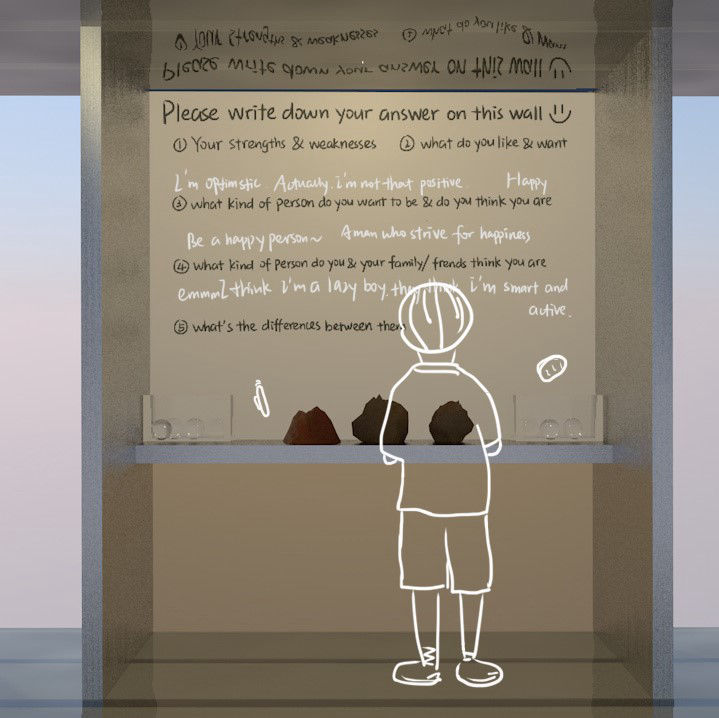 Please write down your answer on this wall
① Your strengths & weaknesses ② what do you like & want
I'm optimstic. Actually. i'm not that positive. Happy
③ what kind of person do you want to be & do you think you are
Be a happy person~ A man who strive for happiness
④ what kind of person do you & your family/ frends think you are
emmm I think i'm a lazy boy. they think i'm smart and
active.
⑤ what's the differences between them